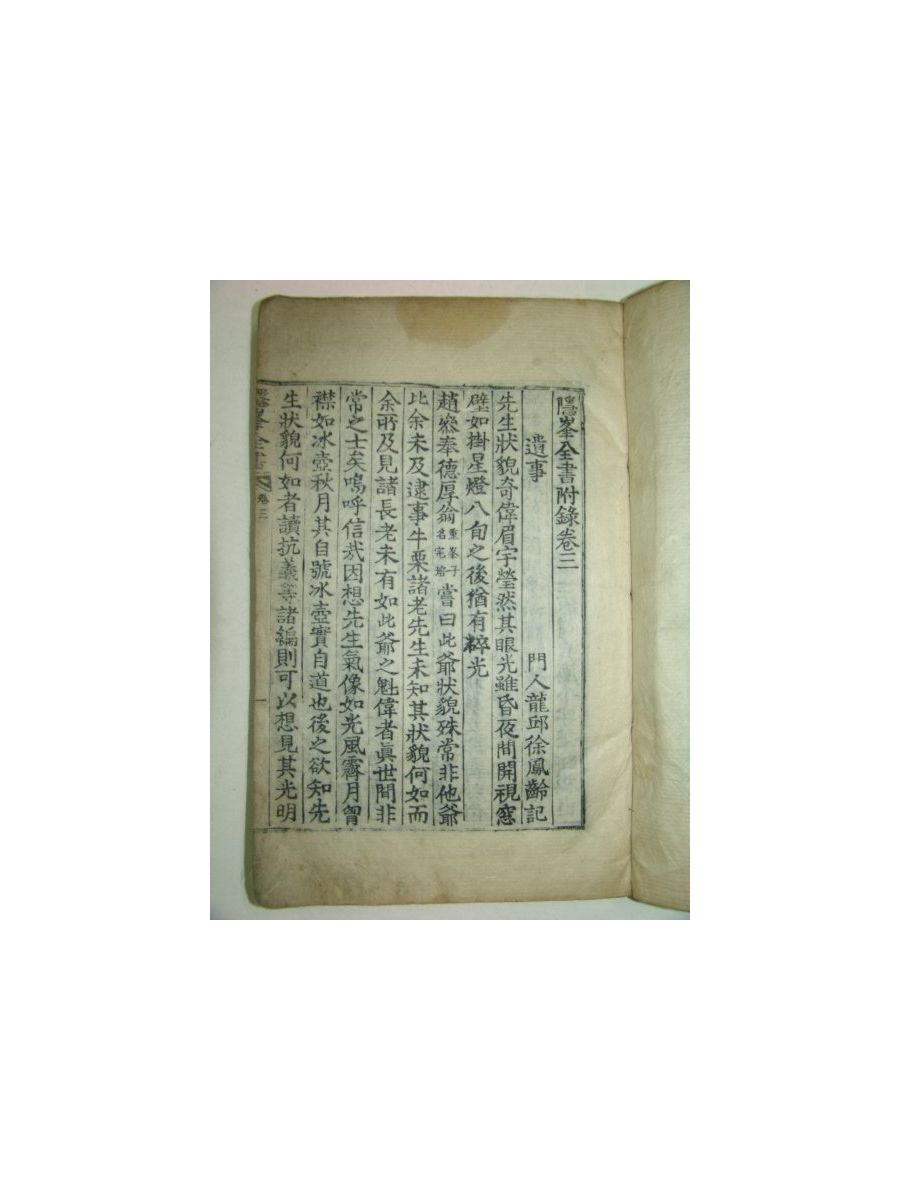 隱峯全書附錄卷三
遺事
門人龍邱徐鳳齡記
先生狀貌奇偉眉宇瑩然其眼光雖昏夜間開視窓
壁如掛星燈八旬之後猶有粹光
趙叅奉德厚翁重峯子名宅培嘗曰此爺狀貌殊常非他爺
比余未及逮事牛栗諸老先生未知其狀貌何如而
余所及見諸長老未有如此爺之魁偉者眞世間非
常之士矣嗚呼信哉因想先生氣像如光風霽月曾
襟如冰壺秋月其自號冰壺實自道也後之欲知先
生狀貌何如者讀抗義等諸編則可以想見其光明
隱峯全書
卷三
一